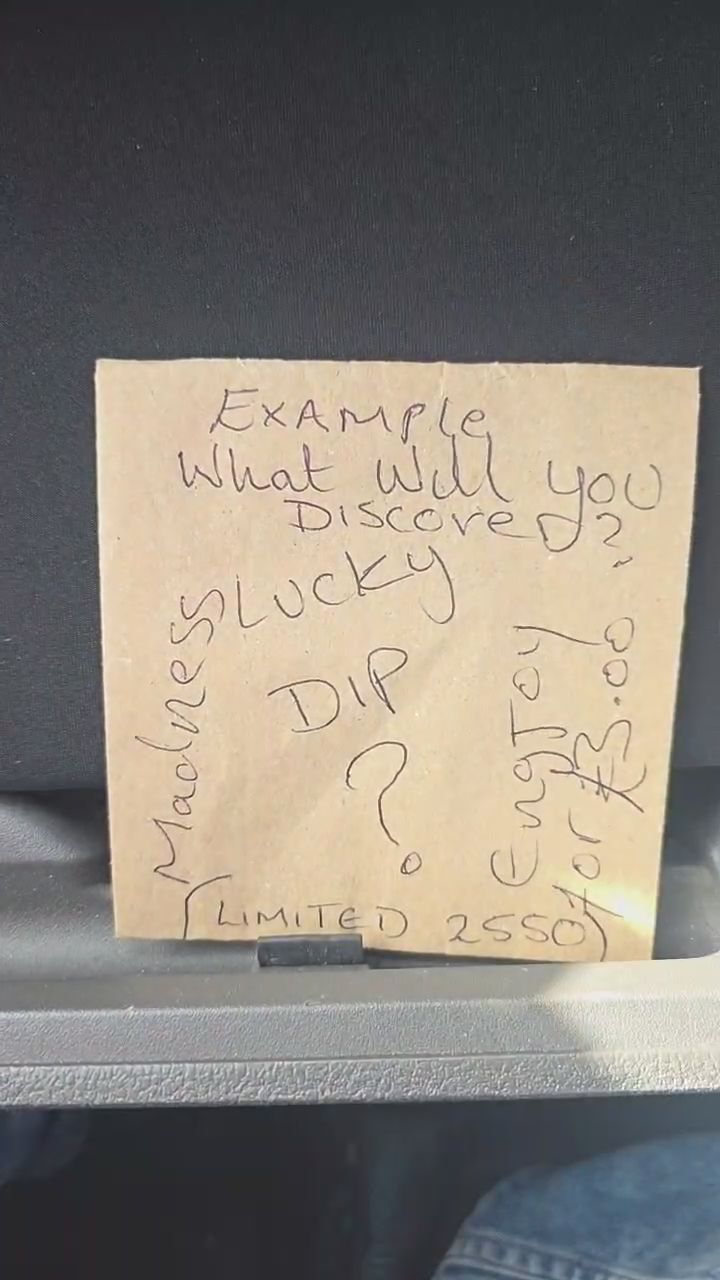 EXAMPLE
What Will you
DISCOVER?
LUCKY
DIP
?
Madness
EngTOY
for £3.00
(LIMITED 2550)